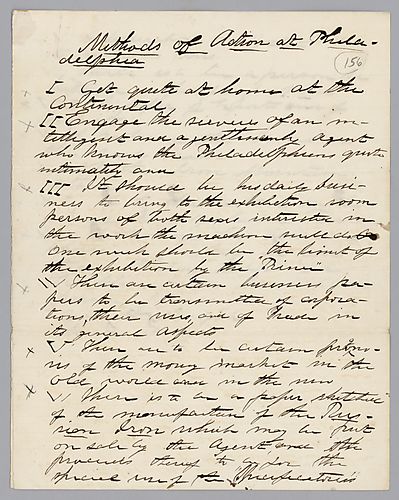 Methods of Action at Phila-
delphia
156
I Get quite at home at the
Continental
II Engage the services of an in-
telligent and a gentlemanly agent
who knows the Philadelphians quite
intimately and
III It should be his daily busi-
ness to bring to the exhibition room
persons of both sexes interested in
the work the machine will do
One week should be "the limit of
the exhibition by the
Then are certain business pa-
pers to be transmitted of corpora-
tions, their uses, and of trade in
its general aspects
V Then are to be certain
of the money market in the
Old world and in the new
VI There is to be a paper sketched
of the manufacture of the Rus-
sian Iron which may be put
on sale by the Agent and the
proceeds thereof to go for the
special use of the